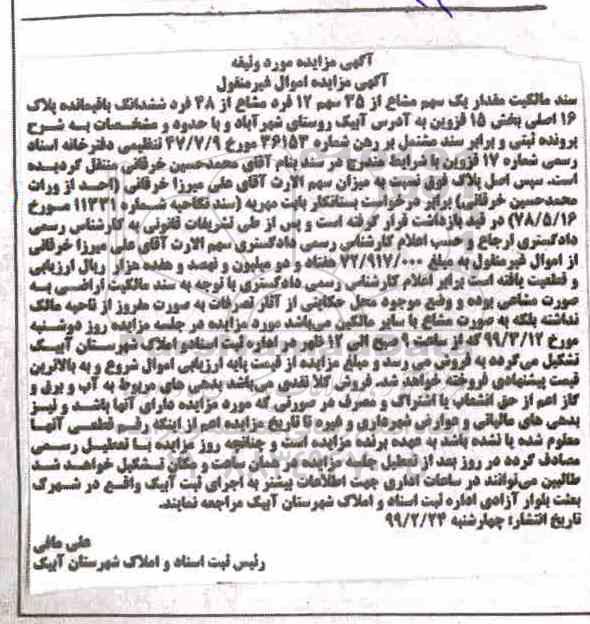 آگهی مزایده مورد وثیقه
آگهی مزایده اموال غیرمنقول
سند مالکیت مقدار یک سهم مشاع از ۳۵ سهم ۱۲ فرد مشاع از ۴۸ فرد ششدانگ باقیمانده پلاک
۱۶ اصلی بخش ۱۵ قزوین به آدرس آبیک روستای شهرآباد و با حدود و مشخصات به شرح
پرونده ثبتی و برابر سند مشتمل بر رهن شماره ۳۶۱۵۳ مورخ ۴۷/۷/۹ تنظیمی دفترخانه اسناد
رسمی شماره ۱۷ قزوین با شرایط مندرج در سند بنام آقای محمدحسین خرقانی منتقل گردیده
است. سپس اصل پلاک فوق نسبت به میزان سهم الارث آقای علی میرزا خرقانی (احد از وراث
محمدحسین خرقانی) برابر درخواست بستانکار بابت مهریه (سند نکاحیه شماره ۱۱۳۳۱ مورخ
۷۸/۵/۱۶) در قید بازداشت قرار گرفته است و پس از طی تشریفات قانونی به کارشناس رسمی
دادگستری ارجاع و حسب اعلام کارشناس رسمی دادگستری سهم الارث آقای علی میرزا خرقانی
از اموال غیرمنقول به مبلغ ۷۲/۹۱۷/۰۰۰ هفتاد و دو میلیون و نهصد و هفده هزار ریال ارزیابی
و قطعیت یافته است برابر اعلام کارشناس رسمی دادگستری با توجه به سند مالکیت اراضی به
صورت مشاعی بوده و وضع موجود محل حکایتی از آثار تصرفات به صورت مفروز از ناحیه مالک
نداشته بلکه به صورت مشاع با سایر مالکین می‌باشد مورد مزایده در جلسه مزایده روز دوشنبه
مورخ ۹۹/۳/۱۲ که از ساعت ۹ صبح الی ۱۲ ظهر در اداره ثبت اسناد و املاک شهرستان آبیک
تشکیل می‌گردد به فروش می رسد و مبلغ مزایده از قیمت پایه ارزیابی اموال شروع و به بالاترین
قیمت پیشنهادی فروخته خواهد شد. فروش کلا نقدی می‌باشد بدهی های مربوط به آب و برق و
گاز اعم از حق انشعاب یا اشتراک و مصرف در صورتی که مورد مزایده دارای آنها باشد و نیز
بدهی های مالیاتی و عوارض شهرداری و غیره تا تاریخ مزایده اعم از اینکه رقم قطعی آنها
معلوم شده یا نشده باشد به عهده برنده مزایده است و چنانچه روز مزایده با تعطیل رسمی
مصادف گردد در روز بعد از تعطیل جلسه مزایده در همان ساعت و مکان تشکیل خواهد شد
طالبین می‌توانند در ساعات اداری جهت اطلاعات بیشتر به اجرای ثبت آبیک واقع در شهرک
بعثت بلوار آزادی اداره ثبت اسناد و املاک شهرستان آبیک مراجعه نمایند.
تاریخ انتشار: چهارشنبه ۹۹/۲/۲۴
علی مافی
رئیس ثبت اسناد و املاک شهرستان آبیک